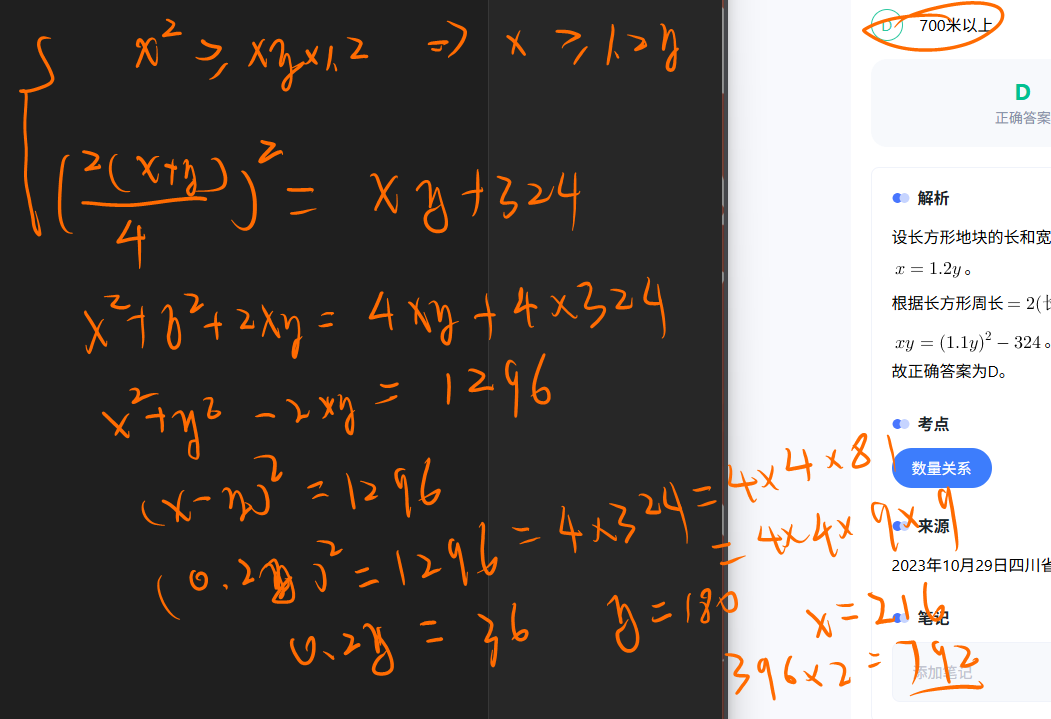 x² ≥ xy×1.2 ⇒ x ≥ 1.2y
(2(x+y)/4)² = xy+324
x²+y²+2xy = 4xy+4×324
x²+y²-2xy = 1296
(x-y)² = 1296
(0.2y)² = 1296 = 4×324 = 4×4×81
= 4×4×9×9
0.2y = 36 y=180 x=216
396×2 = 792
D 700米以上
D
正确答案
解析
设长方形地块的长和宽
x = 1.2y。
根据长方形周长 = 2(
xy = (1.1y)² − 324。
故正确答案为D。
考点
数量关系
来源
2023年10月29日四川省
笔记
添加笔记